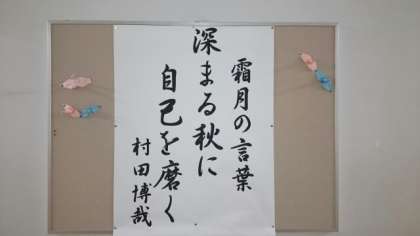 霜月の言葉
深まる秋に
自己を磨く
村田博哉